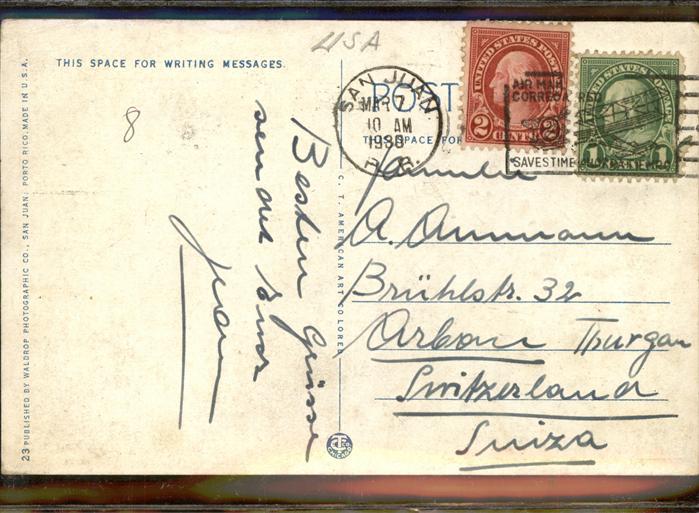 USA
THIS SPACE FOR WRITING MESSAGES.
POST
THIS SPACE FOR
8
Besten Grüsse
sendet Euer
Jean
SAN JUAN
MAR 7
10 AM
1930
P. R.
UNITED STATES POSTAGE
2 CENTS 2
AIR MAIL
CORREO AEREO
SAVES TIME
1 1
Familie
A. Ammann
Brühlstr. 32
Arbon Thurgau
Switzerland
Suiza
C. T. AMERICAN ART COLORED
23 PUBLISHED BY WALDROP PHOTOGRAPHIC CO., SAN JUAN, PORTO RICO. MADE IN U.S.A.